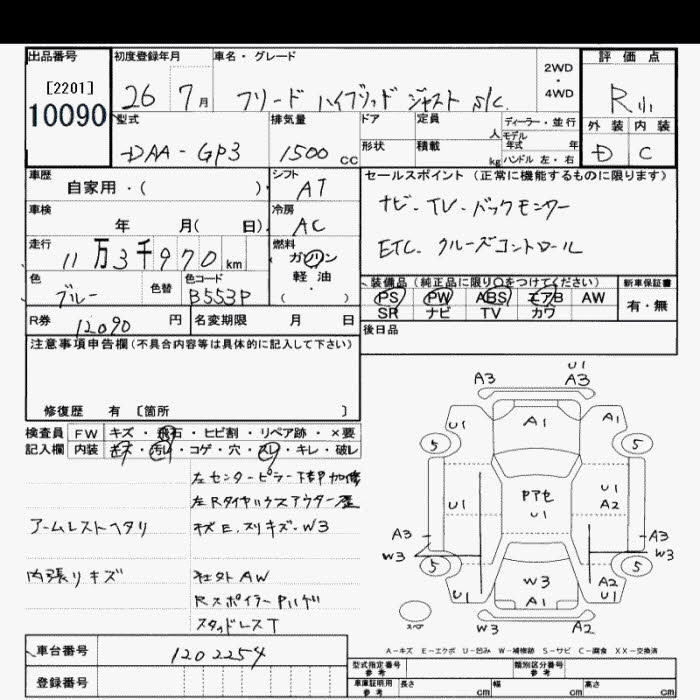 出品番号
[2201]
10090
初度登録年月
26 7月
車名・グレード
フリード ハイブリッド ジャスト S/C
2WD
・
4WD
評価点
R
外装 内装
D C
型式
DAA-GP3
排気量
1500 cc
ドア
形状
定員 人
積載 kg
ディーラー・並行
モデル年式 年
ハンドル 左・右
車歴
自家用・( )
シフト
AT
車検
年 月( 日)
冷房
AC
走行
11万3千970km
燃料
ガソリン
軽油
( )
色
ブルー
色替
色コード
B553P
R券 12090 円
名変期限 月 日
セールスポイント (正常に機能するものに限ります)
ナビ・TV・バックモニター
ETC. クルーズコントロール
装備品 (純正品に限り○をつけてください)
PS PW ABS エアB AW
SR ナビ TV カワ
新車保証書
有・無
後日品
注意事項申告欄(不具合内容等は具体的に記入して下さい)
修復歴 有 〔箇所 〕
検査員
記入欄
FW キズ・飛石・ヒビ割・リペア跡・×要
内装 キズ・汚レ・コゲ・穴・スレ・キレ・破レ
左センターピラー下部
左Rタイヤハウスアウター
アームレストヘタリ
キズE.スリキズ・W3
内張りキズ
社外AW
RスポイラーPハゲ
スタッドレスT
U1
A3 A3
U1 A1 A1
5 5
U1 Pアセ U1 U1 A2
A3 A3
W3 W3
5 5
W3 A2
U1 A1 U1
スペア
W3 A2
A-キズ E-エクボ U-凹み W-補修跡 S-サビ C-腐食 XX-交換済
車台番号 1202254
登録番号
型式指定番号
参考
類別区分番号
参考
車庫証明用
参考
長さ cm 幅 cm 高さ cm